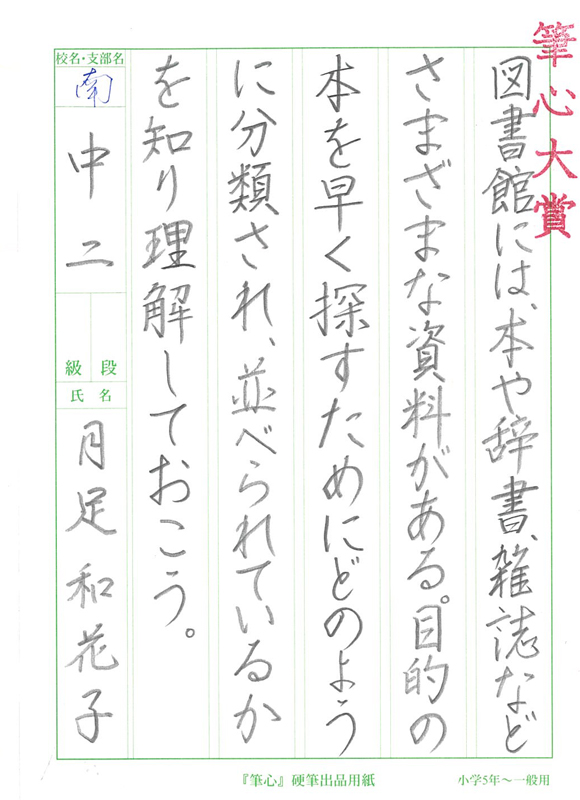 筆心大賞
図書館には、本や辞書、雑誌など
さまざまな資料がある。目的の
本を早く探すためにどのよう
に分類され、並べられているか
を知り理解しておこう。
校名・支部名
南
中二
級 段
氏名
月足和花子
『筆心』硬筆出品用紙
小学5年～一般用